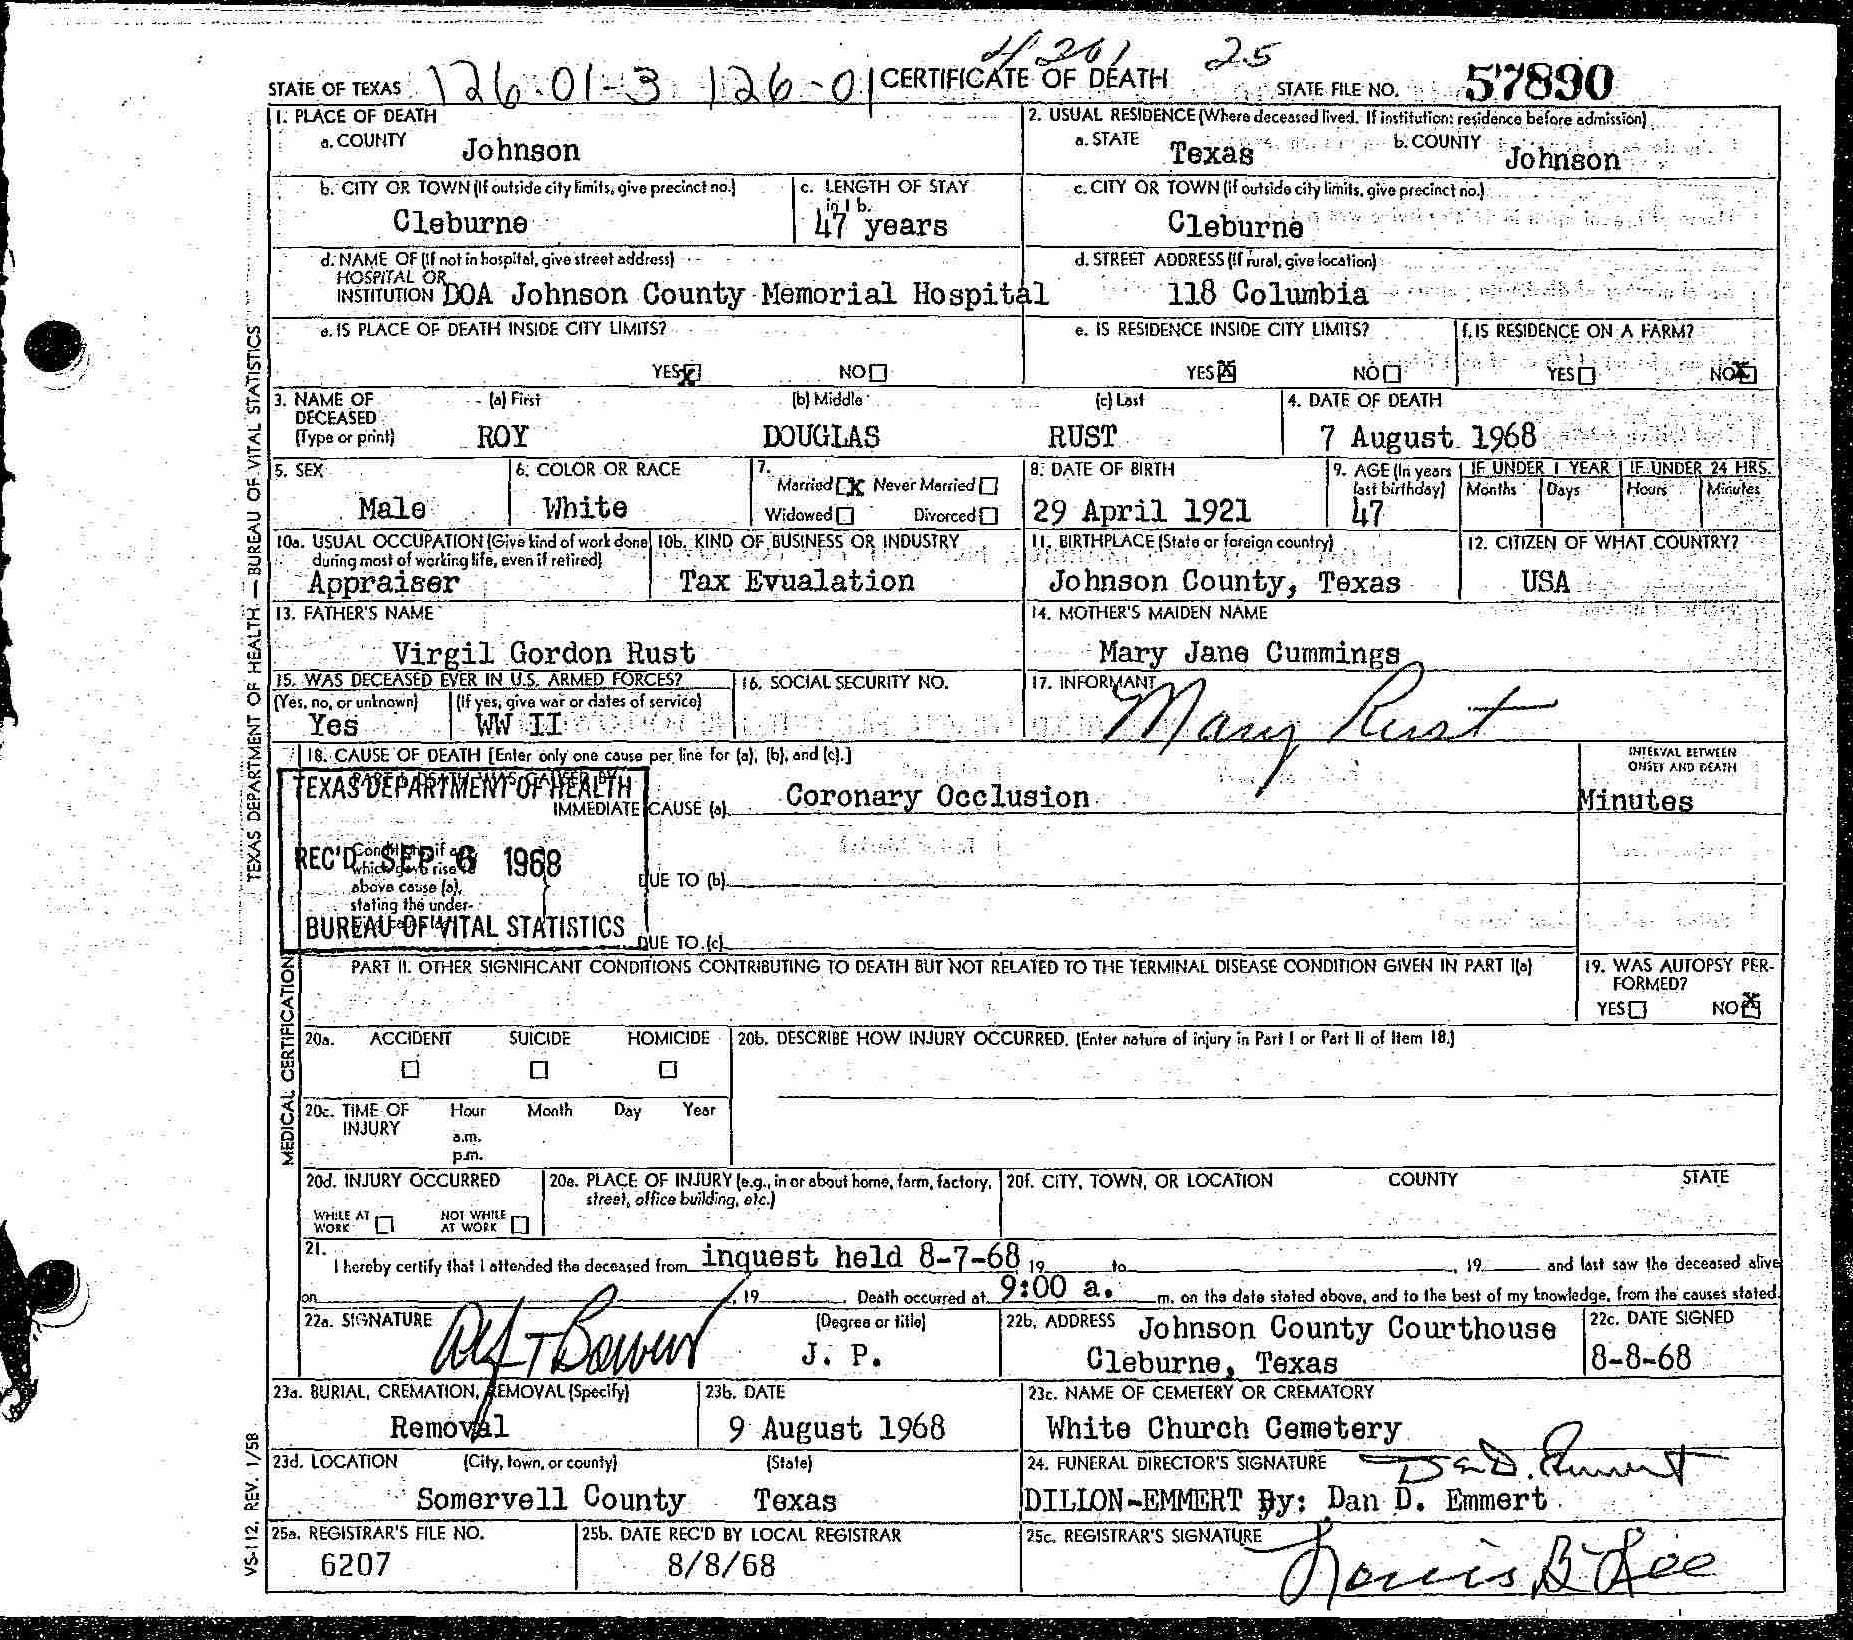 4201 25
STATE OF TEXAS 126-01-3 126-01 CERTIFICATE OF DEATH STATE FILE NO. 57890
1. PLACE OF DEATH
a. COUNTY Johnson
2. USUAL RESIDENCE (Where deceased lived. If institution: residence before admission)
a. STATE Texas b. COUNTY Johnson
b. CITY OR TOWN (If outside city limits, give precinct no.) Cleburne
c. LENGTH OF STAY in 1 b. 47 years
c. CITY OR TOWN (If outside city limits, give precinct no.) Cleburne
d. NAME OF (If not in hospital, give street address)
HOSPITAL OR
INSTITUTION DOA Johnson County Memorial Hospital
d. STREET ADDRESS (If rural, give location)
118 Columbia
e. IS PLACE OF DEATH INSIDE CITY LIMITS?
YES X NO
e. IS RESIDENCE INSIDE CITY LIMITS?
YES X NO
f. IS RESIDENCE ON A FARM?
YES NO X
3. NAME OF DECEASED (Type or print)
(a) First (b) Middle (c) Last
ROY DOUGLAS RUST
4. DATE OF DEATH
7 August 1968
5. SEX
Male
6. COLOR OR RACE
White
7.
Married X Never Married
Widowed Divorced
8. DATE OF BIRTH
29 April 1921
9. AGE (In years last birthday)
47
IF UNDER 1 YEAR IF UNDER 24 HRS.
Months Days Hours Minutes
10a. USUAL OCCUPATION (Give kind of work done during most of working life, even if retired)
Appraiser
10b. KIND OF BUSINESS OR INDUSTRY
Tax Evualation
11. BIRTHPLACE (State or foreign country)
Johnson County, Texas
12. CITIZEN OF WHAT COUNTRY?
USA
13. FATHER'S NAME
Virgil Gordon Rust
14. MOTHER'S MAIDEN NAME
Mary Jane Cummings
15. WAS DECEASED EVER IN U.S. ARMED FORCES?
(Yes, no, or unknown) (If yes, give war or dates of service)
Yes WW II
16. SOCIAL SECURITY NO.
17. INFORMANT
Mary Rust
18. CAUSE OF DEATH [Enter only one cause per line for (a), (b), and (c).]
INTERVAL BETWEEN
ONSET AND DEATH
PART I. DEATH WAS CAUSED BY:
TEXAS DEPARTMENT OF HEALTH
IMMEDIATE CAUSE (a) Coronary Occlusion Minutes
REC'D SEP 6 1968
Conditions, if any,
which gave rise to
above cause (a),
stating the under-
DUE TO (b)
BUREAU OF VITAL STATISTICS
DUE TO (c)
PART II. OTHER SIGNIFICANT CONDITIONS CONTRIBUTING TO DEATH BUT NOT RELATED TO THE TERMINAL DISEASE CONDITION GIVEN IN PART I(a)
19. WAS AUTOPSY PER-
FORMED?
YES NO X
20a. ACCIDENT SUICIDE HOMICIDE
20b. DESCRIBE HOW INJURY OCCURRED. (Enter nature of injury in Part I or Part II of Item 18.)
20c. TIME OF INJURY Hour Month Day Year
a.m.
p.m.
20d. INJURY OCCURRED
WHILE AT WORK NOT WHILE AT WORK
20e. PLACE OF INJURY (e.g., in or about home, farm, factory, street, office building, etc.)
20f. CITY, TOWN, OR LOCATION COUNTY STATE
21.
I hereby certify that I attended the deceased from inquest held 8-7-68 19 to , 19 and last saw the deceased alive
on , 19 . Death occurred at 9:00 a. m. on the date stated above, and to the best of my knowledge, from the causes stated.
22a. SIGNATURE (Degree or title)
J. P.
22b. ADDRESS Johnson County Courthouse
Cleburne, Texas
22c. DATE SIGNED
8-8-68
23a. BURIAL, CREMATION, REMOVAL (Specify)
Removal
23b. DATE
9 August 1968
23c. NAME OF CEMETERY OR CREMATORY
White Church Cemetery
23d. LOCATION (City, town, or county) (State)
Somervell County Texas
24. FUNERAL DIRECTOR'S SIGNATURE Dan D. Emmert
DILLON-EMMERT By: Dan D. Emmert
25a. REGISTRAR'S FILE NO.
6207
25b. DATE REC'D BY LOCAL REGISTRAR
8/8/68
25c. REGISTRAR'S SIGNATURE
B Lee
TEXAS DEPARTMENT OF HEALTH — BUREAU OF VITAL STATISTICS
MEDICAL CERTIFICATION
VS-112, REV. 1/58